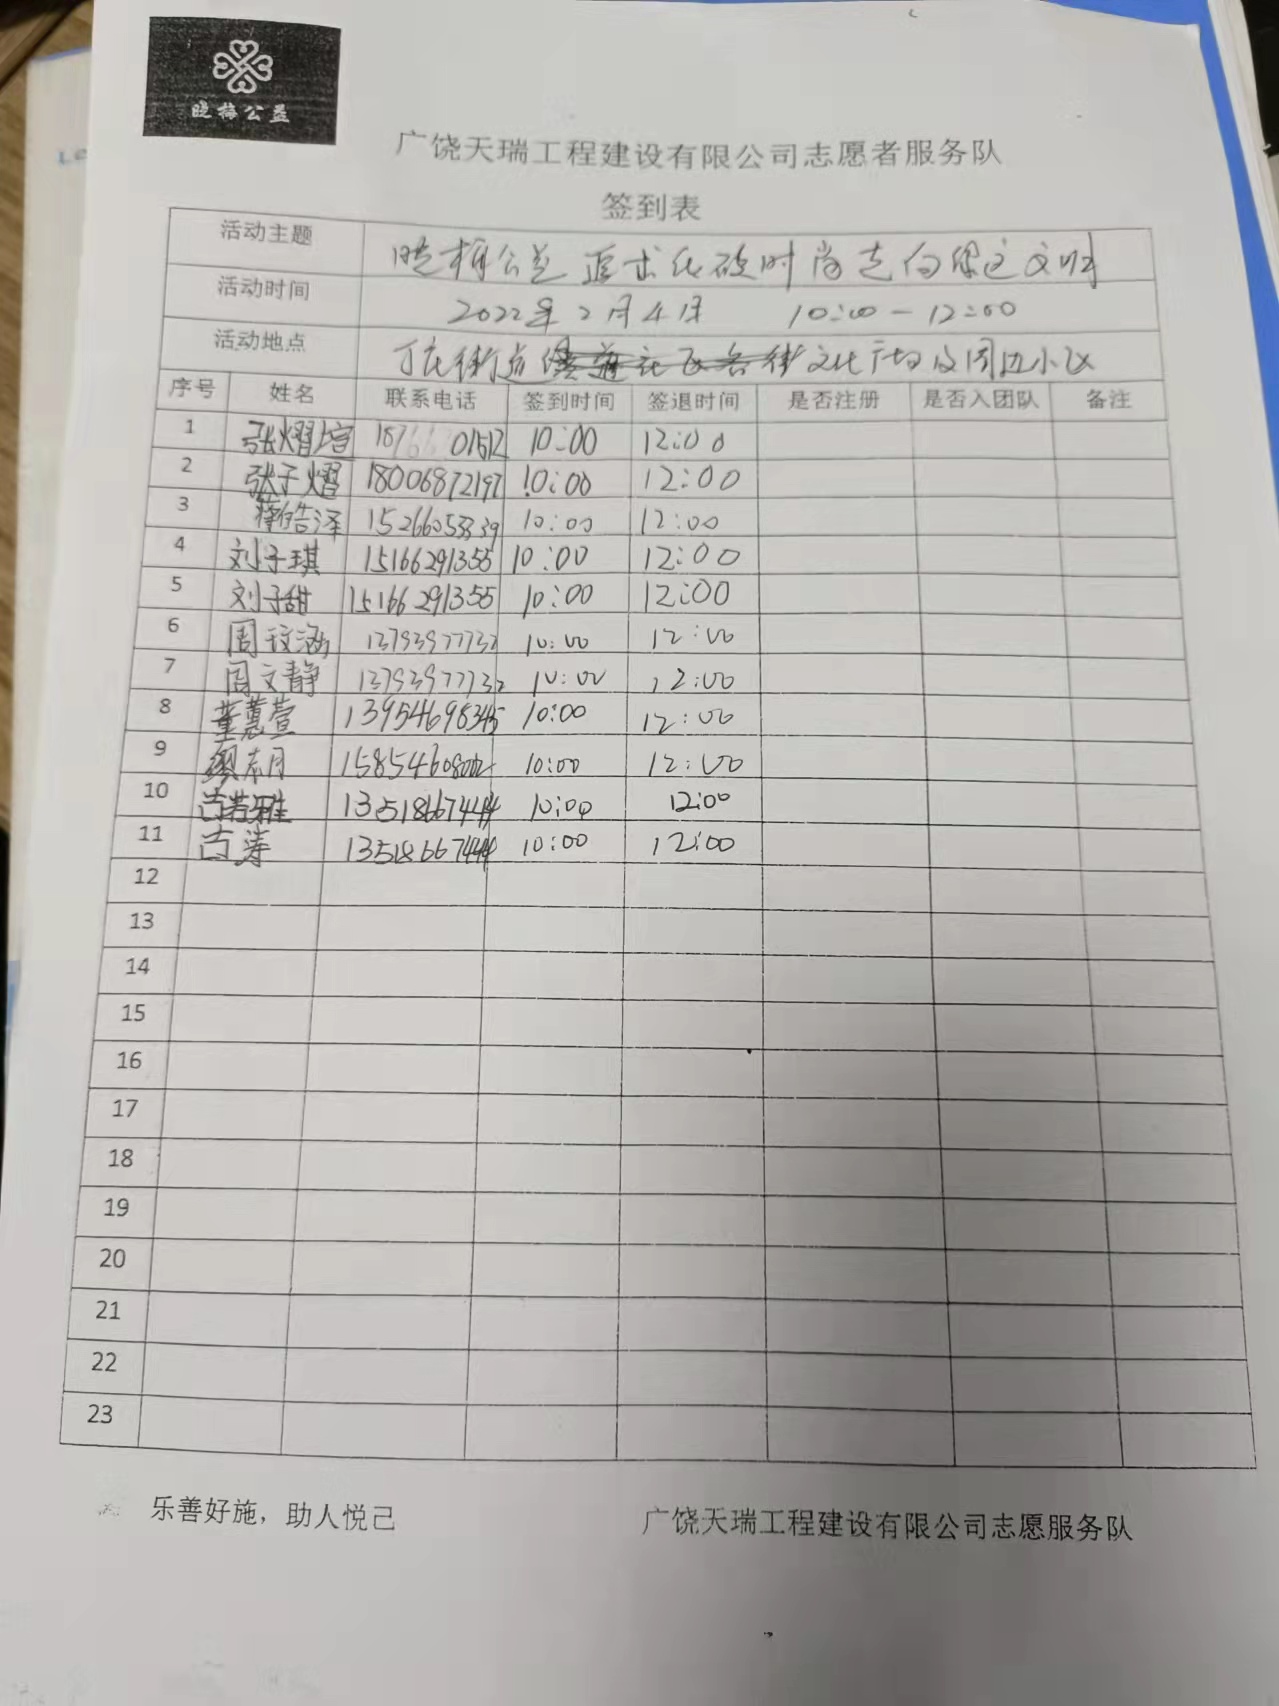 晓梅公益
广饶天瑞工程建设有限公司志愿者服务队
签到表
活动主题 晓梅公益 追求低碳时尚走向绿色文明
活动时间 2022年2月4日 10:00-12:00
活动地点 丁庄街道 文化广场及周边小区
序号 姓名 联系电话 签到时间 签退时间 是否注册 是否入团队 备注
1 张熠瑄 10:00 12:00
2 张子熠 18006872197 10:00 12:00
3 蒋皓泽 15266053339 10:00 12:00
4 刘子琪 15166291355 10:00 12:00
5 刘子甜 15166291355 10:00 12:00
6 周玟涵 13793977732 10:00 12:00
7 周文静 13793977732 10:00 12:00
8 董蕙萱 13954698345 10:00 12:00
9 10:00 12:00
10 13518667444 10:00 12:00
11 13518667444 10:00 12:00
12
13
14
15
16
17
18
19
20
21
22
23
乐善好施，助人悦己 广饶天瑞工程建设有限公司志愿服务队